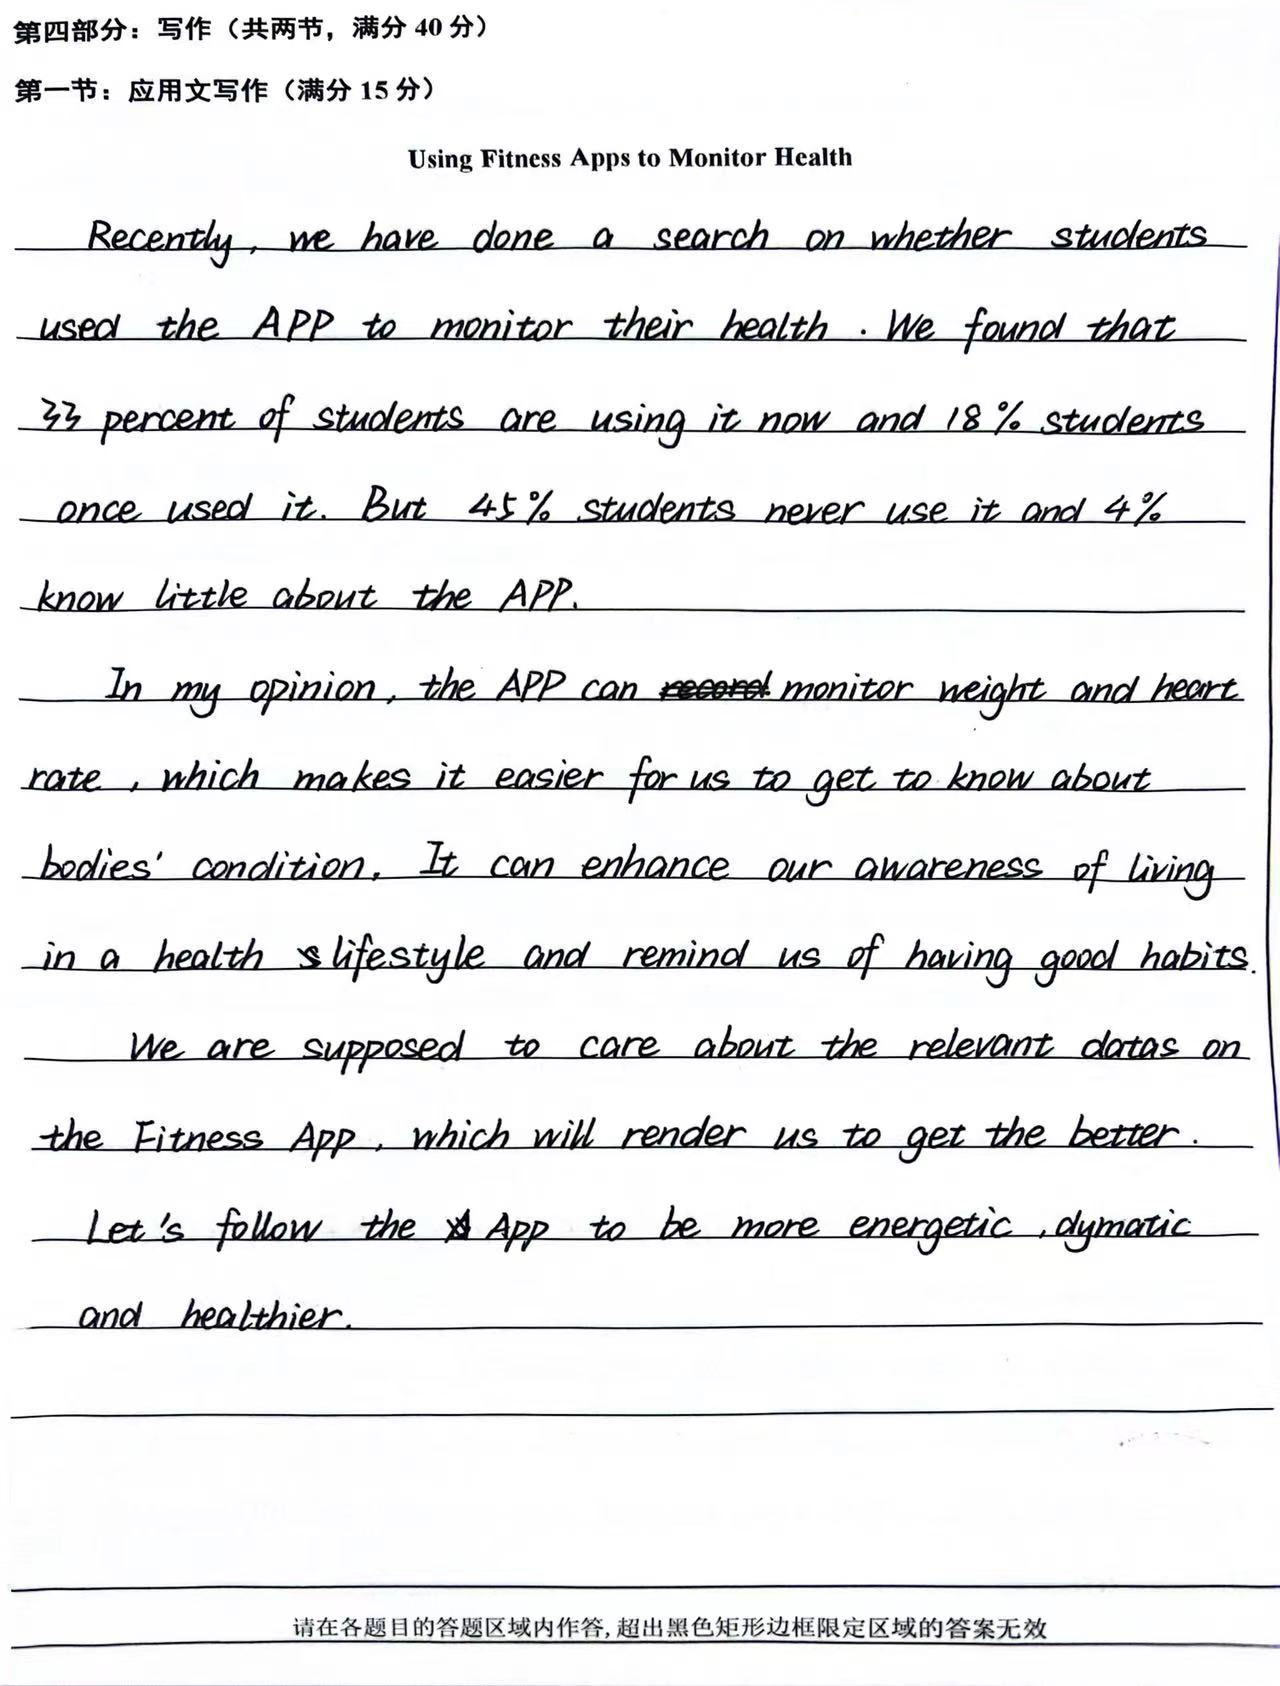 第四部分：写作（共两节，满分 40 分）
第一节：应用文写作（满分 15 分）
Using Fitness Apps to Monitor Health
Recently, we have done a search on whether students
used the APP to monitor their health. We found that
33 percent of students are using it now and 18% students
once used it. But 45% students never use it and 4%
know little about the APP.
In my opinion, the APP can record monitor weight and heart
rate, which makes it easier for us to get to know about
bodies' condition. It can enhance our awareness of living
in a health lifestyle and remind us of having good habits.
We are supposed to care about the relevant datas on
the Fitness App, which will render us to get the better.
Let's follow the App to be more energetic, dymatic
and healthier.
请在各题目的答题区域内作答，超出黑色矩形边框限定区域的答案无效